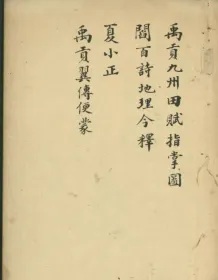 禹貢九州田賦指掌圖
閻百詩地理今釋
夏小正
禹貢翼傳便蒙